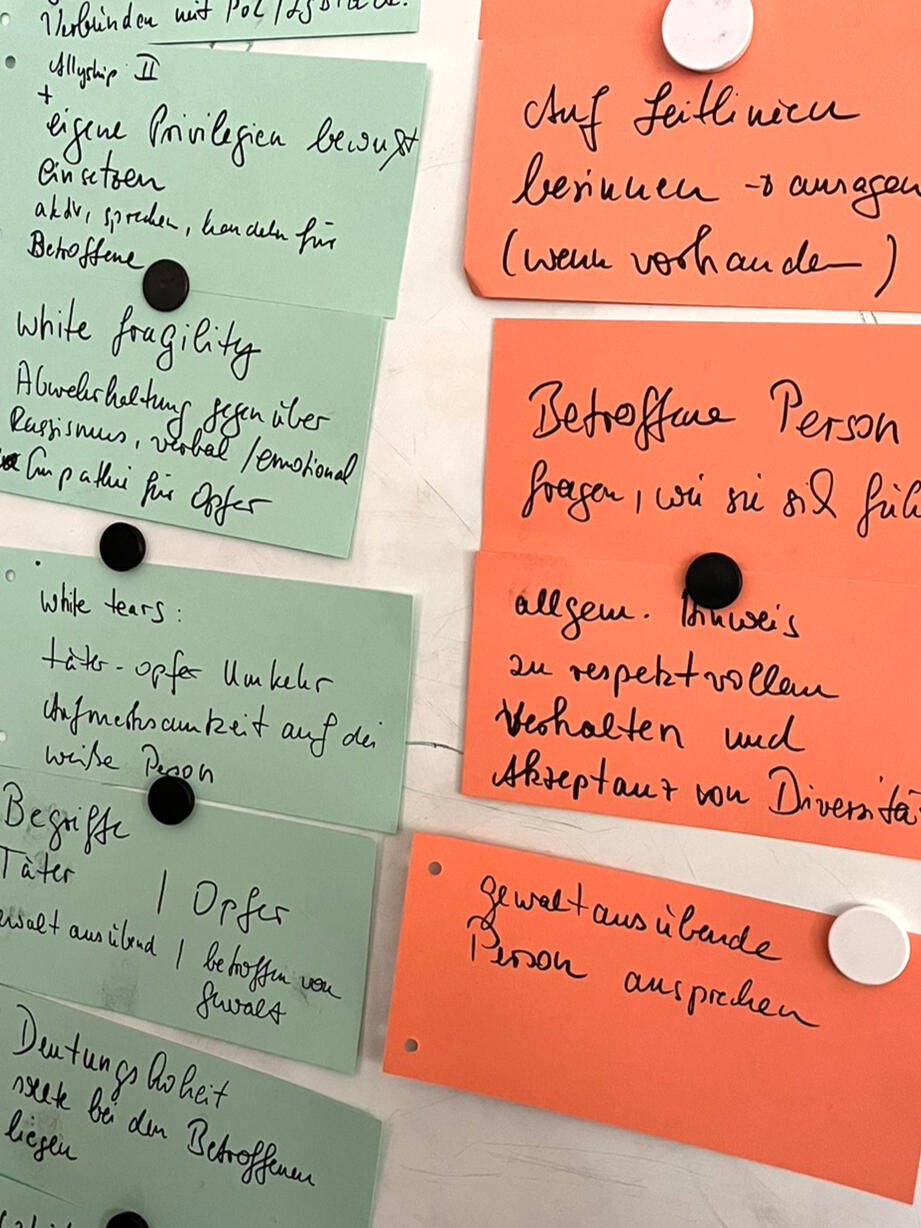 Verbünden mit PoC /
Allyship II
+
eigene Privilegien bewusst
einsetzen
aktiv, sprechen, handeln für
Betroffene
White fragility
Abwehrhaltung gegenüber
Rassismus, verbal / emotional
Empathie für Opfer
White tears:
täter-opfer Umkehr
Aufmerksamkeit auf die
weiße Person
Begriffe
Täter | Opfer
waltausübend | betroffen von
Gewalt
Deutungshoheit
sollte bei den Betroffenen
liegen
Auf Leitlinien
besinnen → ansagen
(wenn vorhanden)
Betroffene Person
fragen, wie sie sich füh
allgem. Hinweis
zu respektvollem
Verhalten und
Akzeptanz von Diversitä
gewaltausübende
Person ansprechen